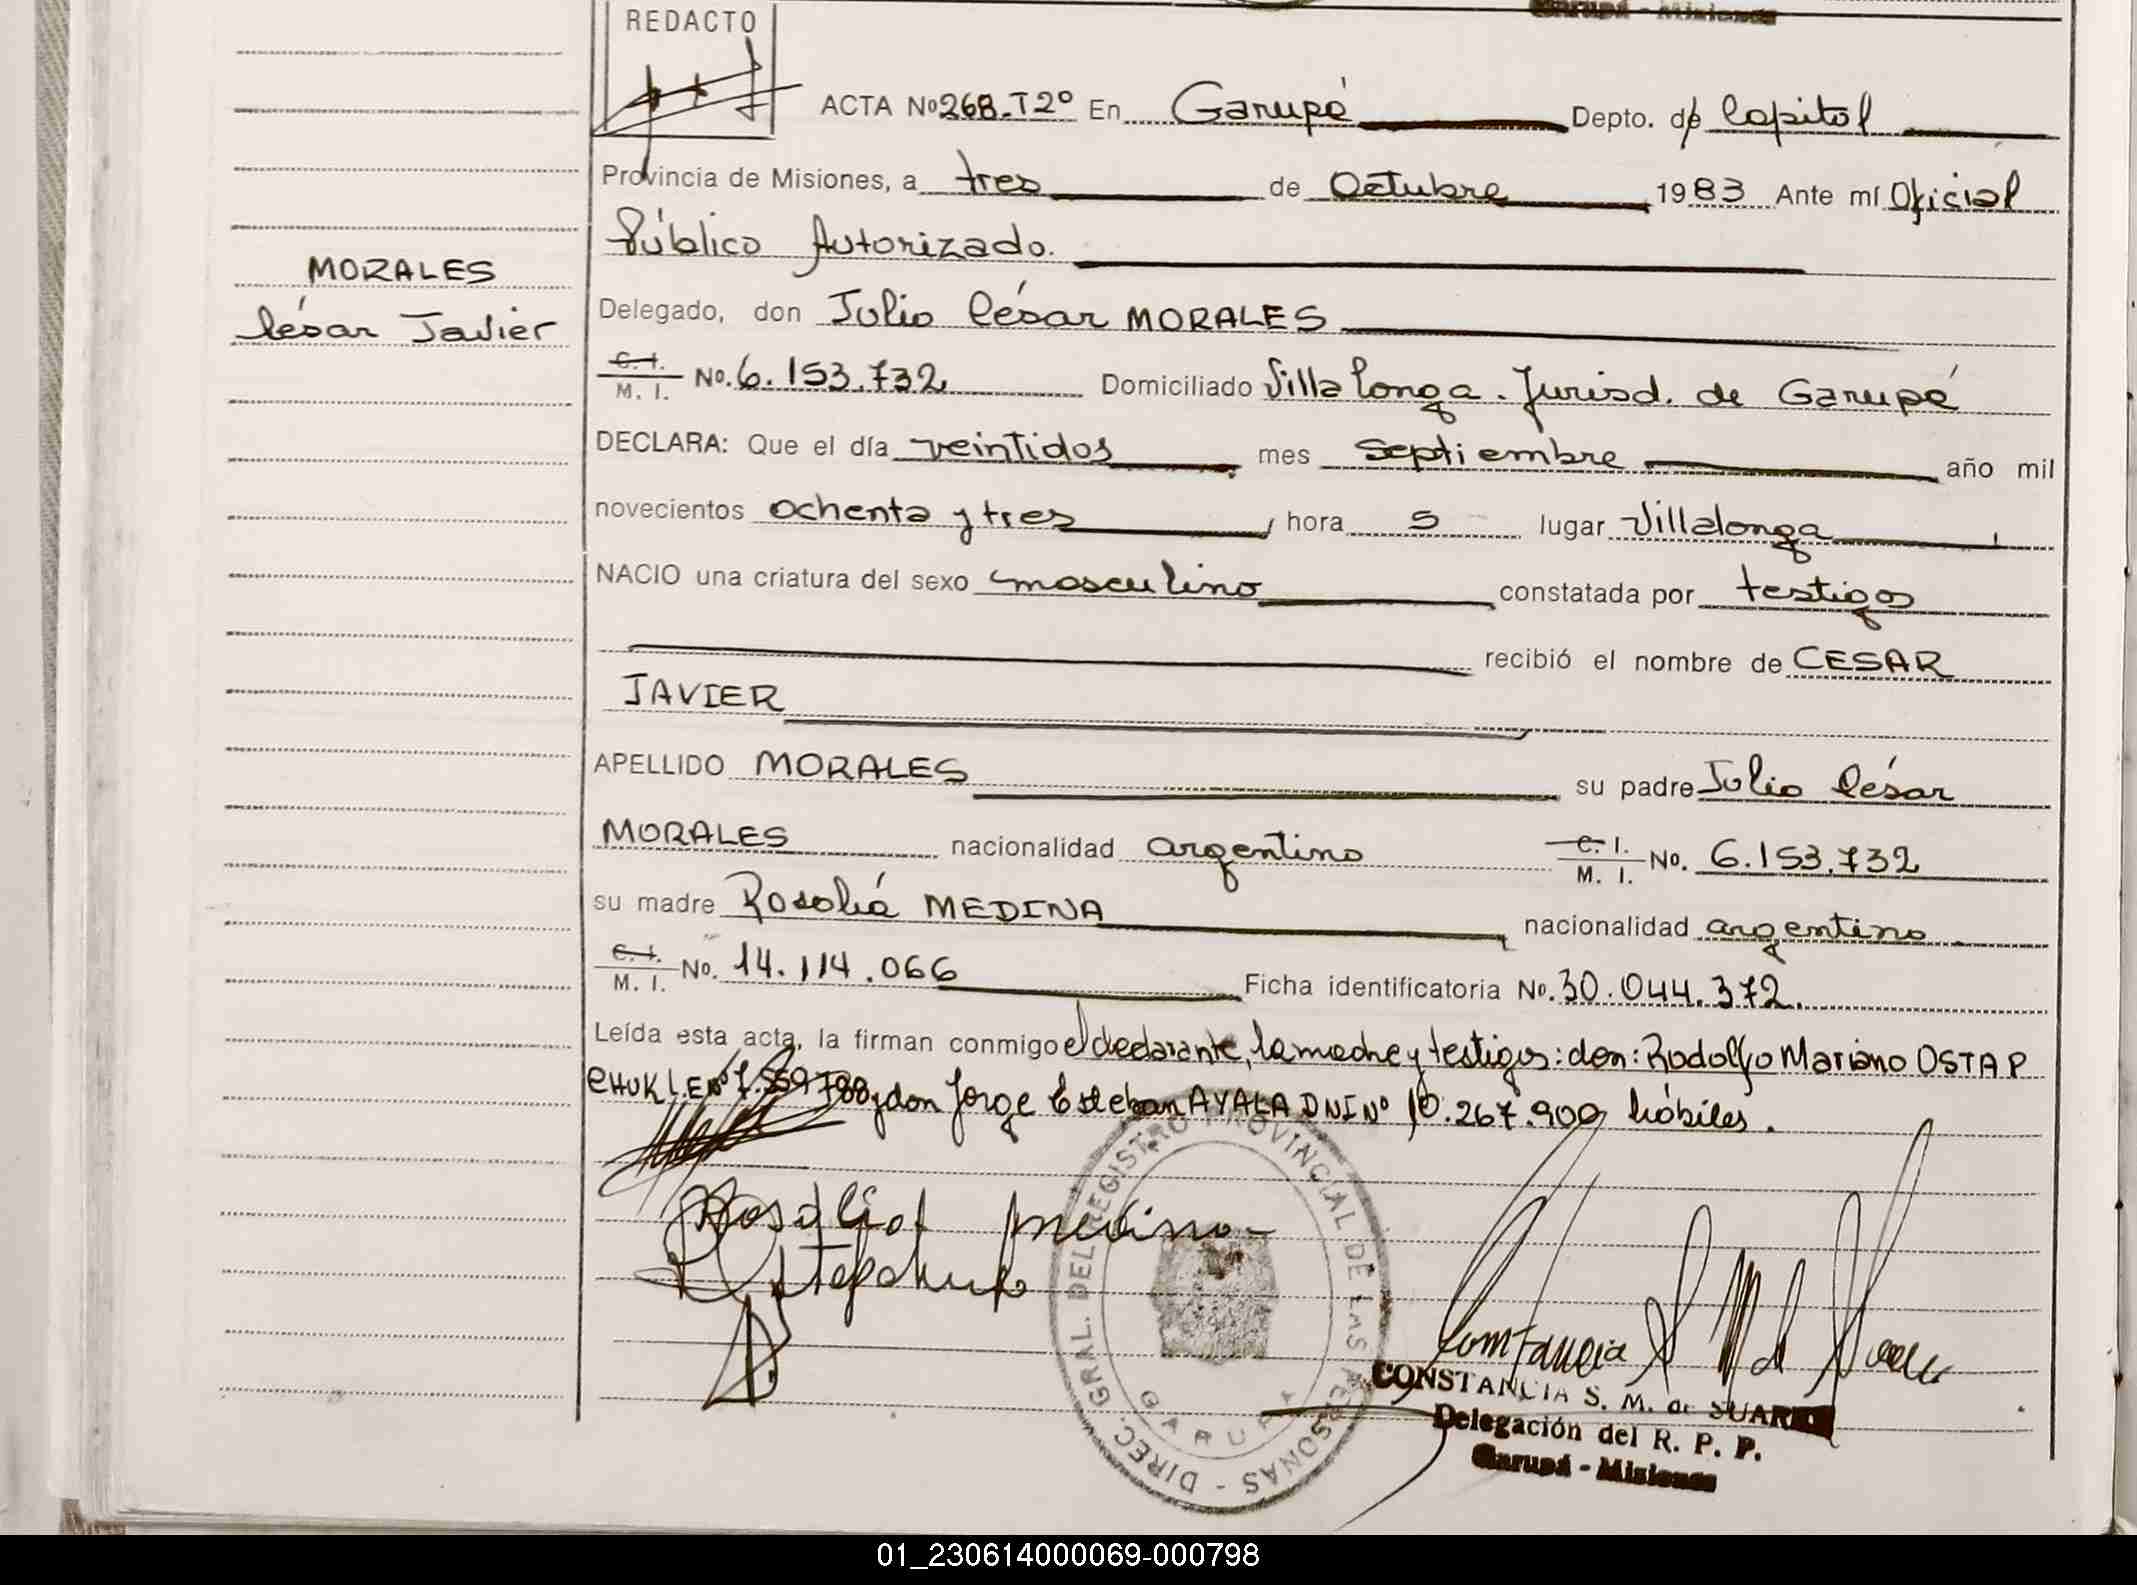 Garupá - Misiones
REDACTO
ACTA No 268-T2º En Garupá Depto. de Capital
Provincia de Misiones, a tres de Octubre 1983 Ante mí Oficial
Público Autorizado.
MORALES
César Javier
Delegado, don Julio César MORALES
C. I. / M. I. No. 6.153.732 Domiciliado Villa Longa. Jurisd. de Garupá
DECLARA: Que el día veintidos mes septiembre año mil
novecientos ochenta y tres, hora 5 lugar Villalonga,
NACIO una criatura del sexo masculino constatada por testigos
recibió el nombre de CESAR
JAVIER
APELLIDO MORALES su padre Julio César
MORALES nacionalidad argentino C. I. / M. I. No. 6.153.732
su madre Rosalía MEDINA nacionalidad argentina
C. I. / M. I. No. 14.114.066 Ficha identificatoria No. 30.044.372.
Leída esta acta, la firman conmigo el declarante, la madre y testigos: don: Rodolfo Mariano OSTAP
CHUK L.E Nº 7.559.788 y don Jorge Esteban AYALA DNI Nº 10.267.900, hábiles.
Rosalia medina
Ostapchuk
DIREC. GRAL. DEL REGISTRO PROVINCIAL DE LAS PERSONAS -
GARUPA
Constancia S M d Suarez
CONSTANCIA S. M. de SUAREZ
Delegación del R. P. P.
Garupá - Misiones
01_230614000069-000798